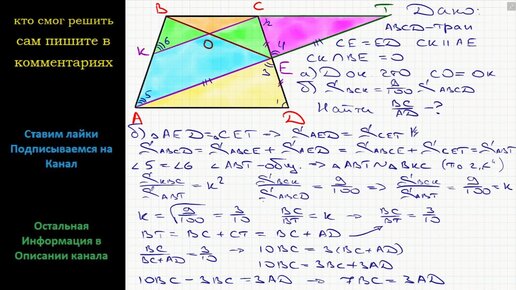 кто смог решить
сам пишите в
комментариях
Ставим лайки
Подписываемся на
Канал
Остальная
Информация в
Описании канала
B
C
T
K
O
E
A
D
6
2
4
3
5
1
Дано:
ABCD-трап
CE=ED CK∥AE
CK∩BE=O
а) Док-зао CO=OK
б) S BCK = 9/100 S ABCD
Найти BC/AD -?
б) △AED=△CET → S AED = S CET
S ABCD = S ABCE + S AED = S ABCE + S CET = S ABT
∠5=∠6 ∠ABT-общ. → △ABT∾△BKC (по 2,∠)
S KBC / S ABT = K² S BCK / S ABCD = 9/100 ⇒ S BCK / S ABT = 9/100 = K
K = √9/100 = 3/10 BC/BT = K → BC/BT = 3/10
BT = BC + CT = BC + AD
BC/BC+AD = 3/10 → 10BC = 3(BC+AD)
10BC = 3BC+3AD
10BC - 3BC = 3AD → 7BC = 3AD